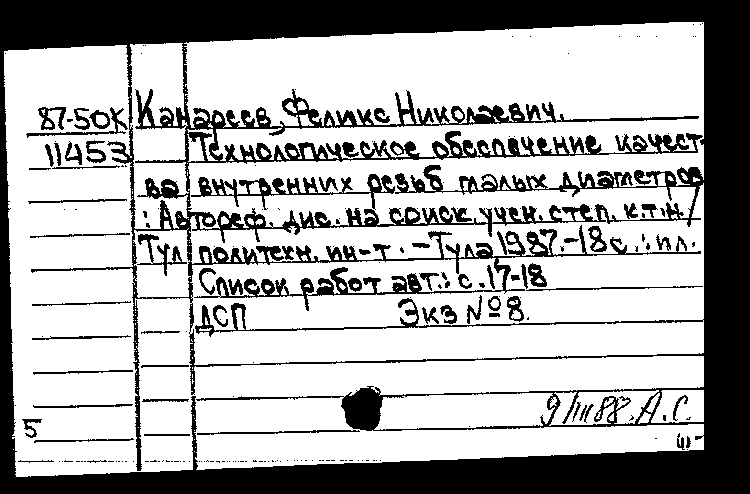 87-50К Канареев, Феликс Николаевич.
11453 Технологическое обеспечение качест-
ва внутренних резьб малых диаметров
: Автореф. дис. на соиск. учен. степ. к.т.н. /
Тул политехн. ин-т. - Тула 1987. - 18 с. : ил.
Список работ авт.: с. 17-18
ДСП Экз № 8.
9/III 88. А.С.
5